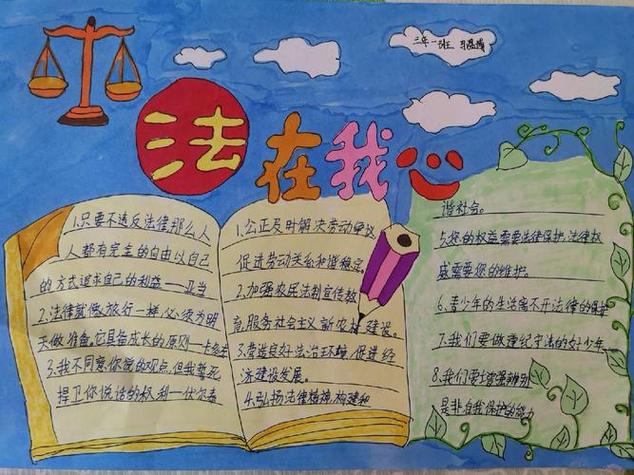 三年一班
法在我心
1.只要不违反法律那么人
人都有完全的自由以自己
的方式追求自己的利益——亚当
2.法律就像旅行一样,必须为明
天做准备。它具备成长的原则—卡多佐
3.我不同意你说的观点,但我誓死
捍卫你说话的权利—伏尔泰
1.公正及时解决劳动争议
促进劳动关系和谐稳定。
2.加强农民法制宣传教
育,服务社会主义新农村建设。
3.营造良好法治环境,促进经
济建设发展。
4.弘扬法律精神,构建和
谐社会。
5.您的权益需要法律保护,法律权
威需要您的维护。
6.青少年的生活离不开法律的保护
7.我们要做遵纪守法的好少年
8.我们要增强辨别
是非自我保护的能力